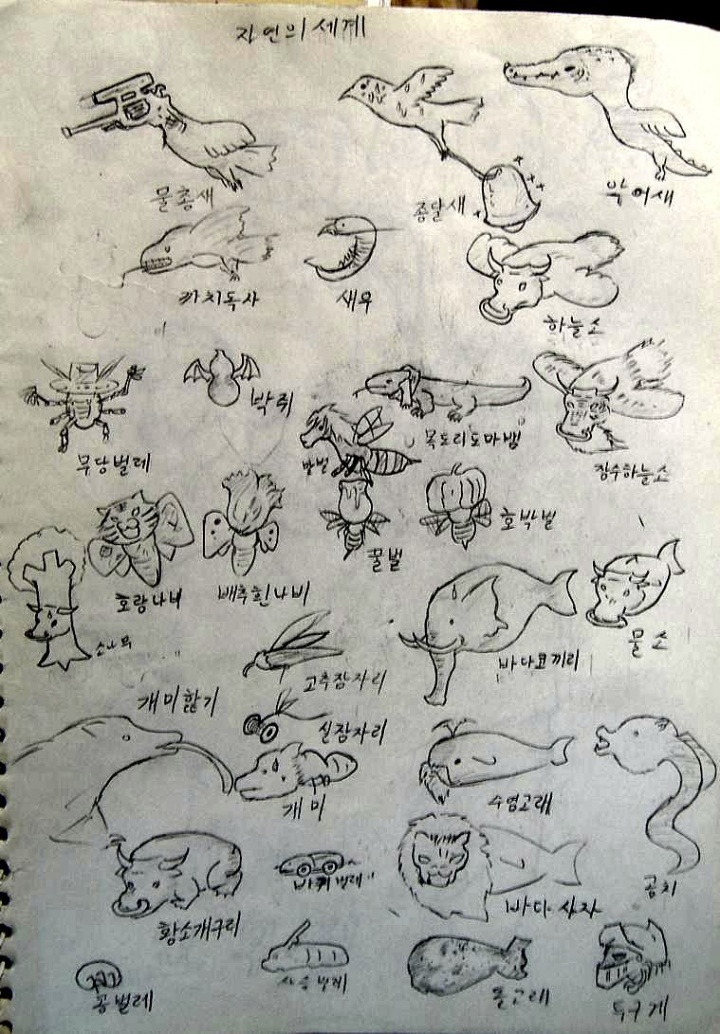 자연의 세계
물총새
종달새
악어새
까치독사
새우
하늘소
무당벌레
박쥐
목도리도마뱀
장수하늘소
말벌
꿀벌
호박벌
호랑나비
배추흰나비
소나무
고추잠자리
바다코끼리
물소
개미핥기
실잠자리
개미
수염고래
곰치
황소개구리
바퀴벌레
바다사자
콩벌레
사슴벌레
돌고래
투구게